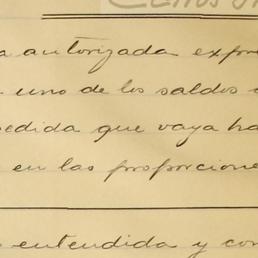 a autorizada expre
uno de los saldos
edida que vaya ha
en las proporcione
entendida y con